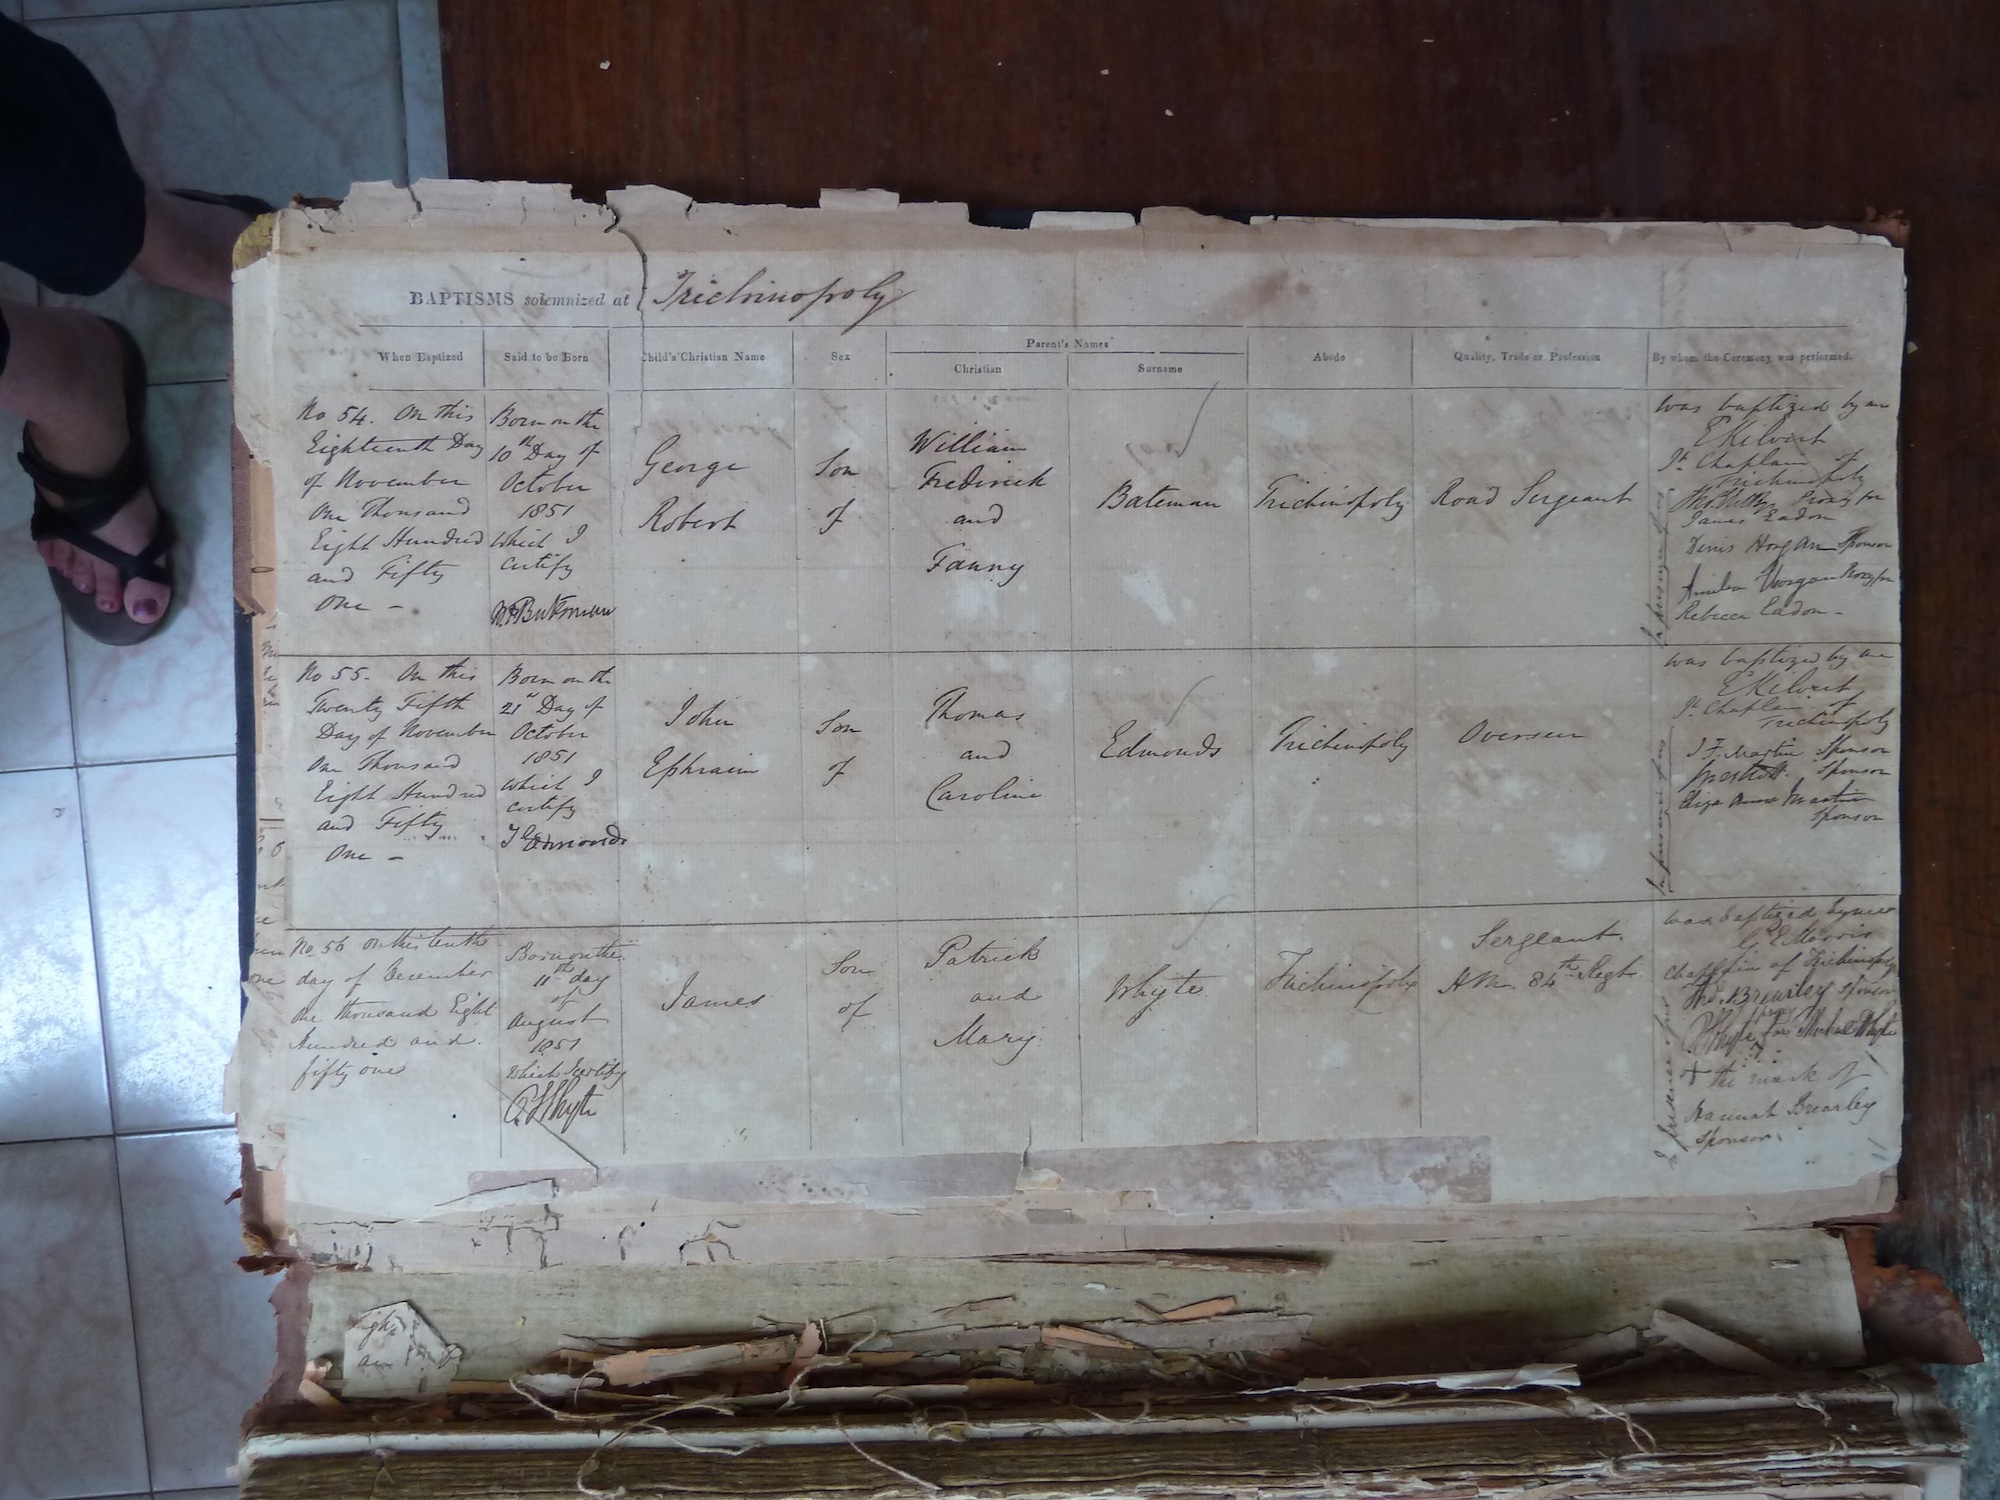 BAPTISMS solemnized at Trichinopoly
When Baptized
Said to be Born
Child's Christian Name
Sex
Parent's Names
Christian
Surname
Abode
Quality, Trade or Profession
By whom the Ceremony was performed.
No 54. On this
Eighteenth Day
of November
One Thousand
Eight Hundred
and Fifty
One -
Born on the
10th Day of
October
1851
which I
certify
George
Robert
Son
of
William
Frederick
and
Fanny
Bateman
Trichinopoly
Road Sergeant
was baptized by me
E Kilvert
Jt. Chaplain of
Trichinopoly
Proxy for
James Eadon
Denis Horgan Sponsor
Amelia Horgan Proxy for
Rebecca Eadon -
In presence of us
No 55. On this
Twenty Fifth
Day of November
One Thousand
Eight Hundred
and Fifty
One -
Born on the
21st Day of
October
1851
which I
certify
T Edmonds
John
Ephraim
Son
of
Thomas
and
Caroline
Edmonds
Trichinopoly
Overseer
was baptized by me
E Kilvert
Jt. Chaplain of
Trichinopoly
J F Martin Sponsor
Sponsor
Eliza Anna Martin
Sponsor
In presence of us
No. 56 On this tenth
day of December
One thousand Eight
hundred and
fifty one
Born on the
11th day
of
August
1851
Which I certify
P Whyte
James
Son
of
Patrick
and
Mary
Whyte
Trichinopoly
Sergeant
H M 84th Regt.
was baptized by me
G E Morris
Chaplain of Trichinopoly
Thos. Brearley Sponsor
P Whyte for Whyte
+ the mark of
Hannah Brearley
Sponsor